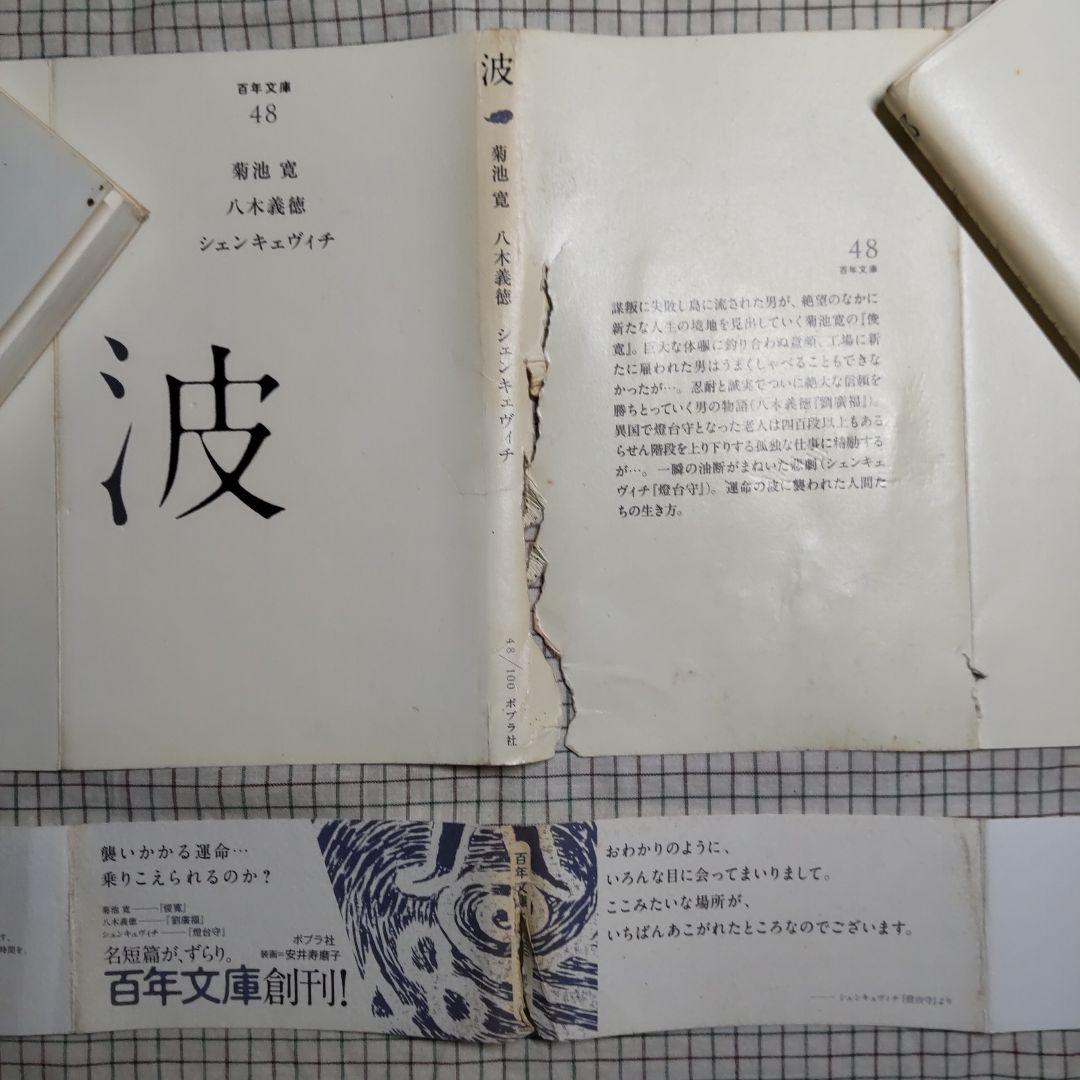 百年文庫
48
菊池 寛
八木義徳
シェンキェヴィチ
波
波
菊池 寛 八木義徳 シェンキェヴィチ
48/100 ポプラ社
48
百年文庫
謀叛に失敗し島に流された男が、絶望のなかに
新たな人生の境地を見出していく菊池寛の『俊
寛』。巨大な体軀に釣り合わぬ童顔、工場に新
たに雇われた男はうまくしゃべることもできな
かったが…。忍耐と誠実でついに絶大な信頼を
勝ちとっていく男の物語（八木義徳『劉廣福』）。
異国で燈台守となった老人は四百段以上もある
らせん階段を上り下りする孤独な仕事に精励する
が…。一瞬の油断がまねいた悲劇（シェンキェ
ヴィチ『燈台守』）。運命の波に襲われた人間た
ちの生き方。
襲いかかる運命…
乗りこえられるのか?
菊池 寛――『俊寛』
八木義徳――『劉廣福』
シェンキェヴィチ――『燈台守』
名短篇が、ずらり。
ポプラ社
装画=安井寿磨子
百年文庫創刊!
百年文庫
おわかりのように、
いろんな目に会ってまいりまして。
ここみたいな場所が、
いちばんあこがれたところなのでございます。
――シェンキェヴィチ『燈台守』より
す。
時間を、